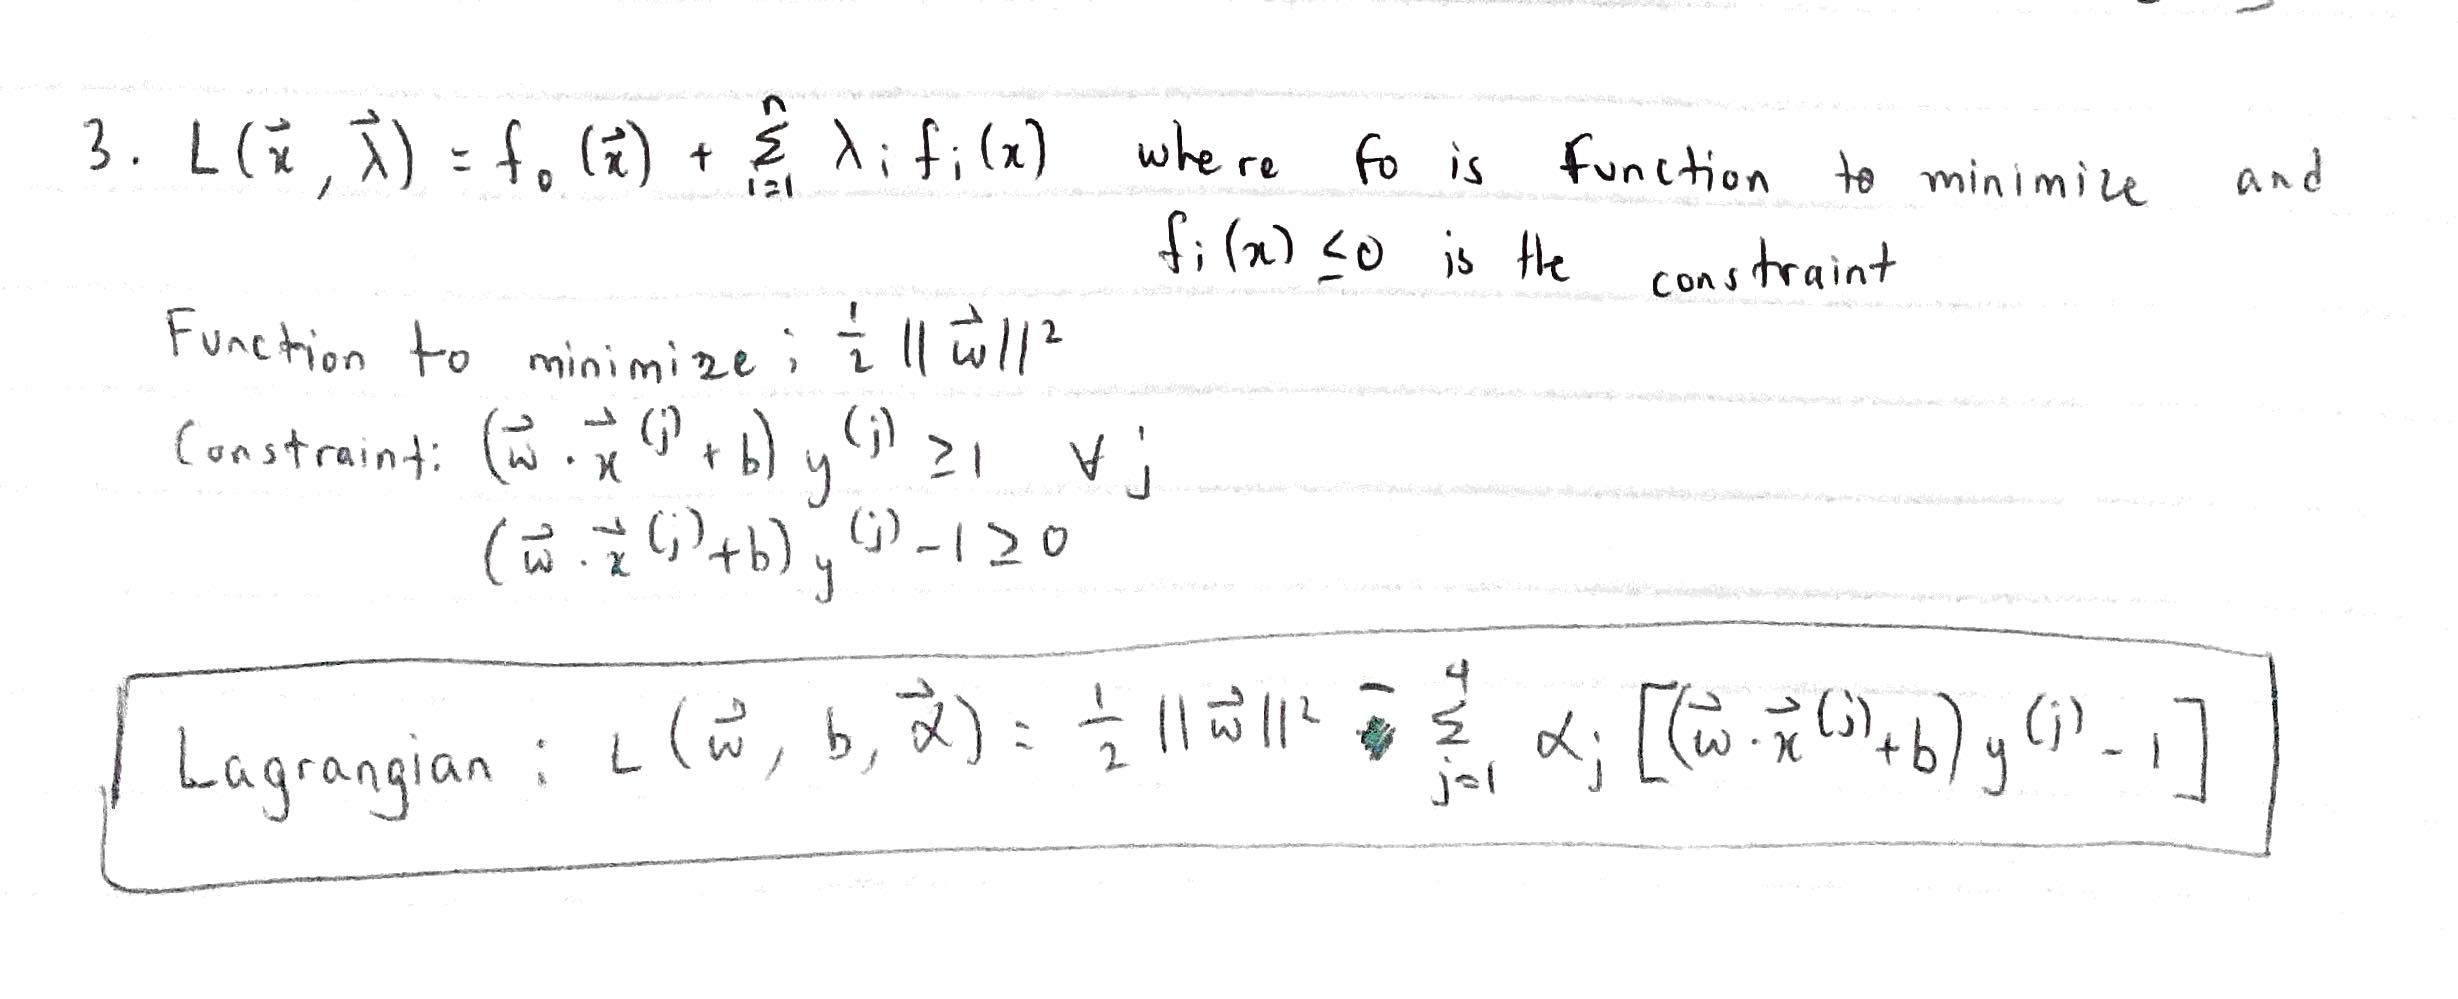 3. L(x⃗, λ⃗) = f₀(x⃗) + Σᵢ₌₁ⁿ λᵢ fᵢ(x) where fo is function to minimize and
fᵢ(x) ≤ 0 is the constraint
Function to minimize; ½ ||w⃗||²
Constraint: (w⃗ · x⃗⁽ʲ⁾ + b) y⁽ʲ⁾ ≥ 1 ∀ j
(w⃗ · x⃗⁽ʲ⁾ + b) y⁽ʲ⁾ - 1 ≥ 0
Lagrangian : L(w⃗, b, α⃗) = ½ ||w⃗||² - Σⱼ₌₁⁴ αⱼ [(w⃗ · x⃗⁽ʲ⁾ + b) y⁽ʲ⁾ - 1]